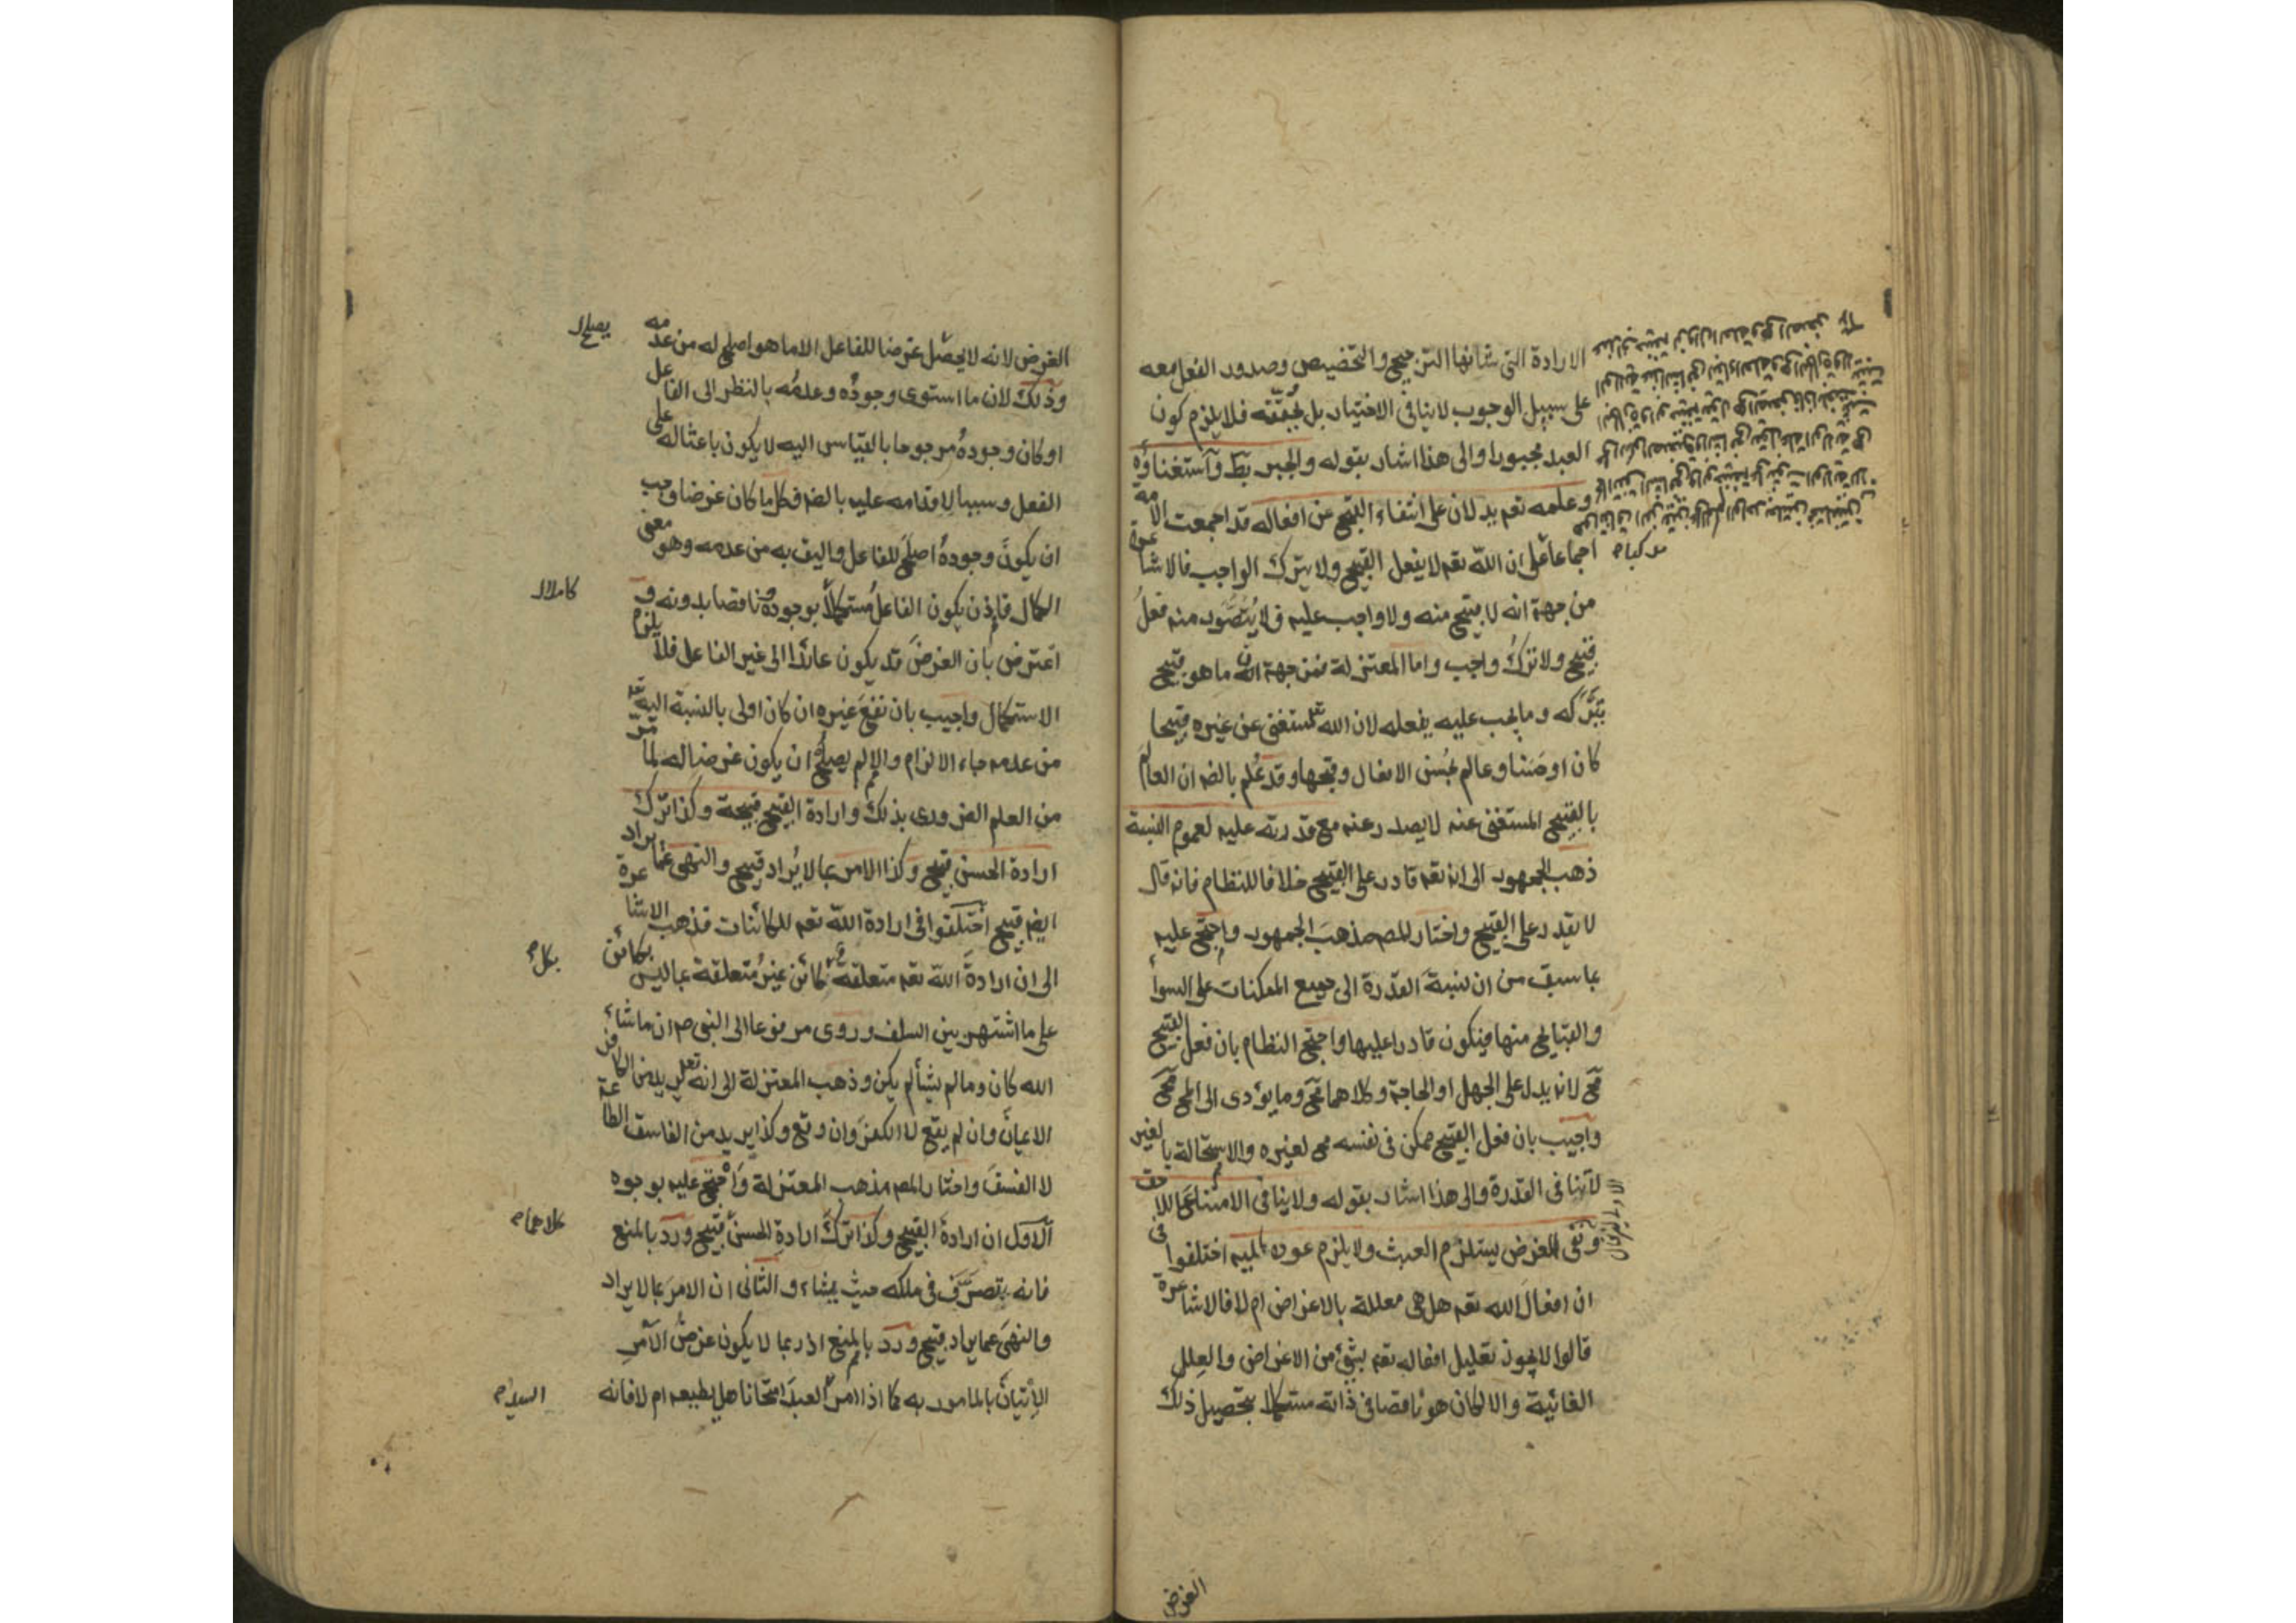 الارادة التى شانها الترجيح والتخصيص وصدور الفعل معه
على سبيل الوجوب لاينافى الاختيار بل يحققه فلا يلزم كون
العبد مجبورا والى هذا اشار بقوله والجبر بط واستغناؤه
وعلمه تعم يدلان على انتفاء القبح عن افعاله قد اجمعت الامه
اجماعا على ان الله تعم لا يفعل القبيح ولا يترك الواجب فالاشاعرة
من جهة انه لا قبيح منه ولا واجب عليه فلا يتصور منه فعل
قبيح ولا ترك واجب واما المعتزلة فمن جهة ان ما هو قبيح
يتركه وما يجب عليه يفعله لان الله تعم مستغنى عن غيره قبيحا
كان او حسنا وعالم بحسن الافعال وقبحها وقد علم بالضه ان العالم
بالقبيح المستغنى عنه لا يصدر عنه مع قدرته عليه لعموم النسبة
ذهب الجمهور الى انه تعم قادر على القبيح خلافا للنظام فانه قال
لا يقدر على القبيح واختار المصه مذهب الجمهور واحتج عليه
بما سبق من ان نسبة القدرة الى جميع الممكنات على السواء
والقبايح منها فيكون قادرا عليها واحتج النظام بان فعل القبيح
مح لانه يدل على الجهل او الحاجة وكلاهما مح وما يؤدى الى المح مح
واجيب بان فعل القبيح ممكن فى نفسه مح لغيره والاستحالة بالغير
لا تنافى القدرة والى هذا اشار بقوله ولا ينافى الامتناع اللاحق
ونفى الغرض يستلزم العبث ولا يلزم عوده اليه اختلفوا فى
ان افعال الله تعم هل هى معللة بالاغراض ام لا فالاشاعرة
قالوا لا يجوز تعليل افعاله تعم بشئ من الاغراض والعلل
الغائية والا لكان هو ناقصا فى ذاته مستكملا بتحصيل ذلك
الغرض
الغرض لانه لا يحصل غرضا للفاعل الا ما هو اصلح له من عدمه
وذلك لان ما استوى وجوده وعدمه بالنظر الى الفاعل
او كان وجوده مرجوحا بالقياس اليه لا يكون باعثا له على
الفعل وسببا لاقدامه عليه بالضه فكل ما كان غرضا وجب
ان يكون وجوده اصلح للفاعل واليق به من عدمه وهو معنى
الكمال فاذن يكون الفاعل مستكملا بوجوده وناقصا بدونه و
اعترض بان الغرض قد يكون عائدا الى غير الفاعل فلا يلزم
الاستكمال واجيب بان نفع غيره ان كان اولى بالنسبة اليه تعم
من عدمه جاء الالزام والا لم يصلح ان يكون غرضا له لما مر
من العلم الضرورى بذلك وارادة القبيح قبيحة وكذا ترك
ارادة الحسن قبيح وكذا الامر بما لا يراد قبيح والنهى عما يراد
ايضه قبيح اختلفوا فى ارادة الله تعم للكائنات فذهب الاشاعرة
الى ان ارادة الله تعم متعلقة بكل كائن غير متعلقة بما ليس بكائن
على ما اشتهر بين السلف وروى مرفوعا الى النبى صم ان ماشاء
الله كان وما لم يشأ لم يكن وذهب المعتزلة الى انه تعالى يريد من الكافر
الايمان وان لم يقع لا الكفر وان وقع وكذا يريد من الفاسق الطاعة
لا الفسق واختار المصه مذهب المعتزلة واحتج عليه بوجوه
الاول ان ارادة القبيح وكذا ترك ارادة الحسن قبيح ورد بالمنع
فانه يتصرف فى ملكه حيث يشاء والثانى ان الامر بما لا يراد
والنهى عما يراد قبيح ورد بالمنع اذ ربما لا يكون غرض الآمر
الاتيان بالمامور به كما اذا امر العبد امتحانا هل يطيعه ام لا فانه
يصلح
كاملا
بكل
كلاهما